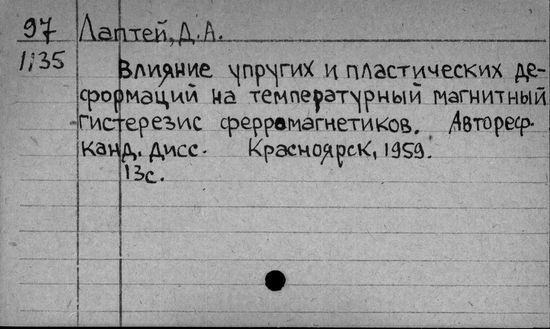 97 Лаптей, Д.А.
1;35 Влияние упругих и пластических де-
формаций на температурный магнитный
гистерезис ферромагнетиков. Автореф.
канд. дисс. Красноярск, 1959.
13с.